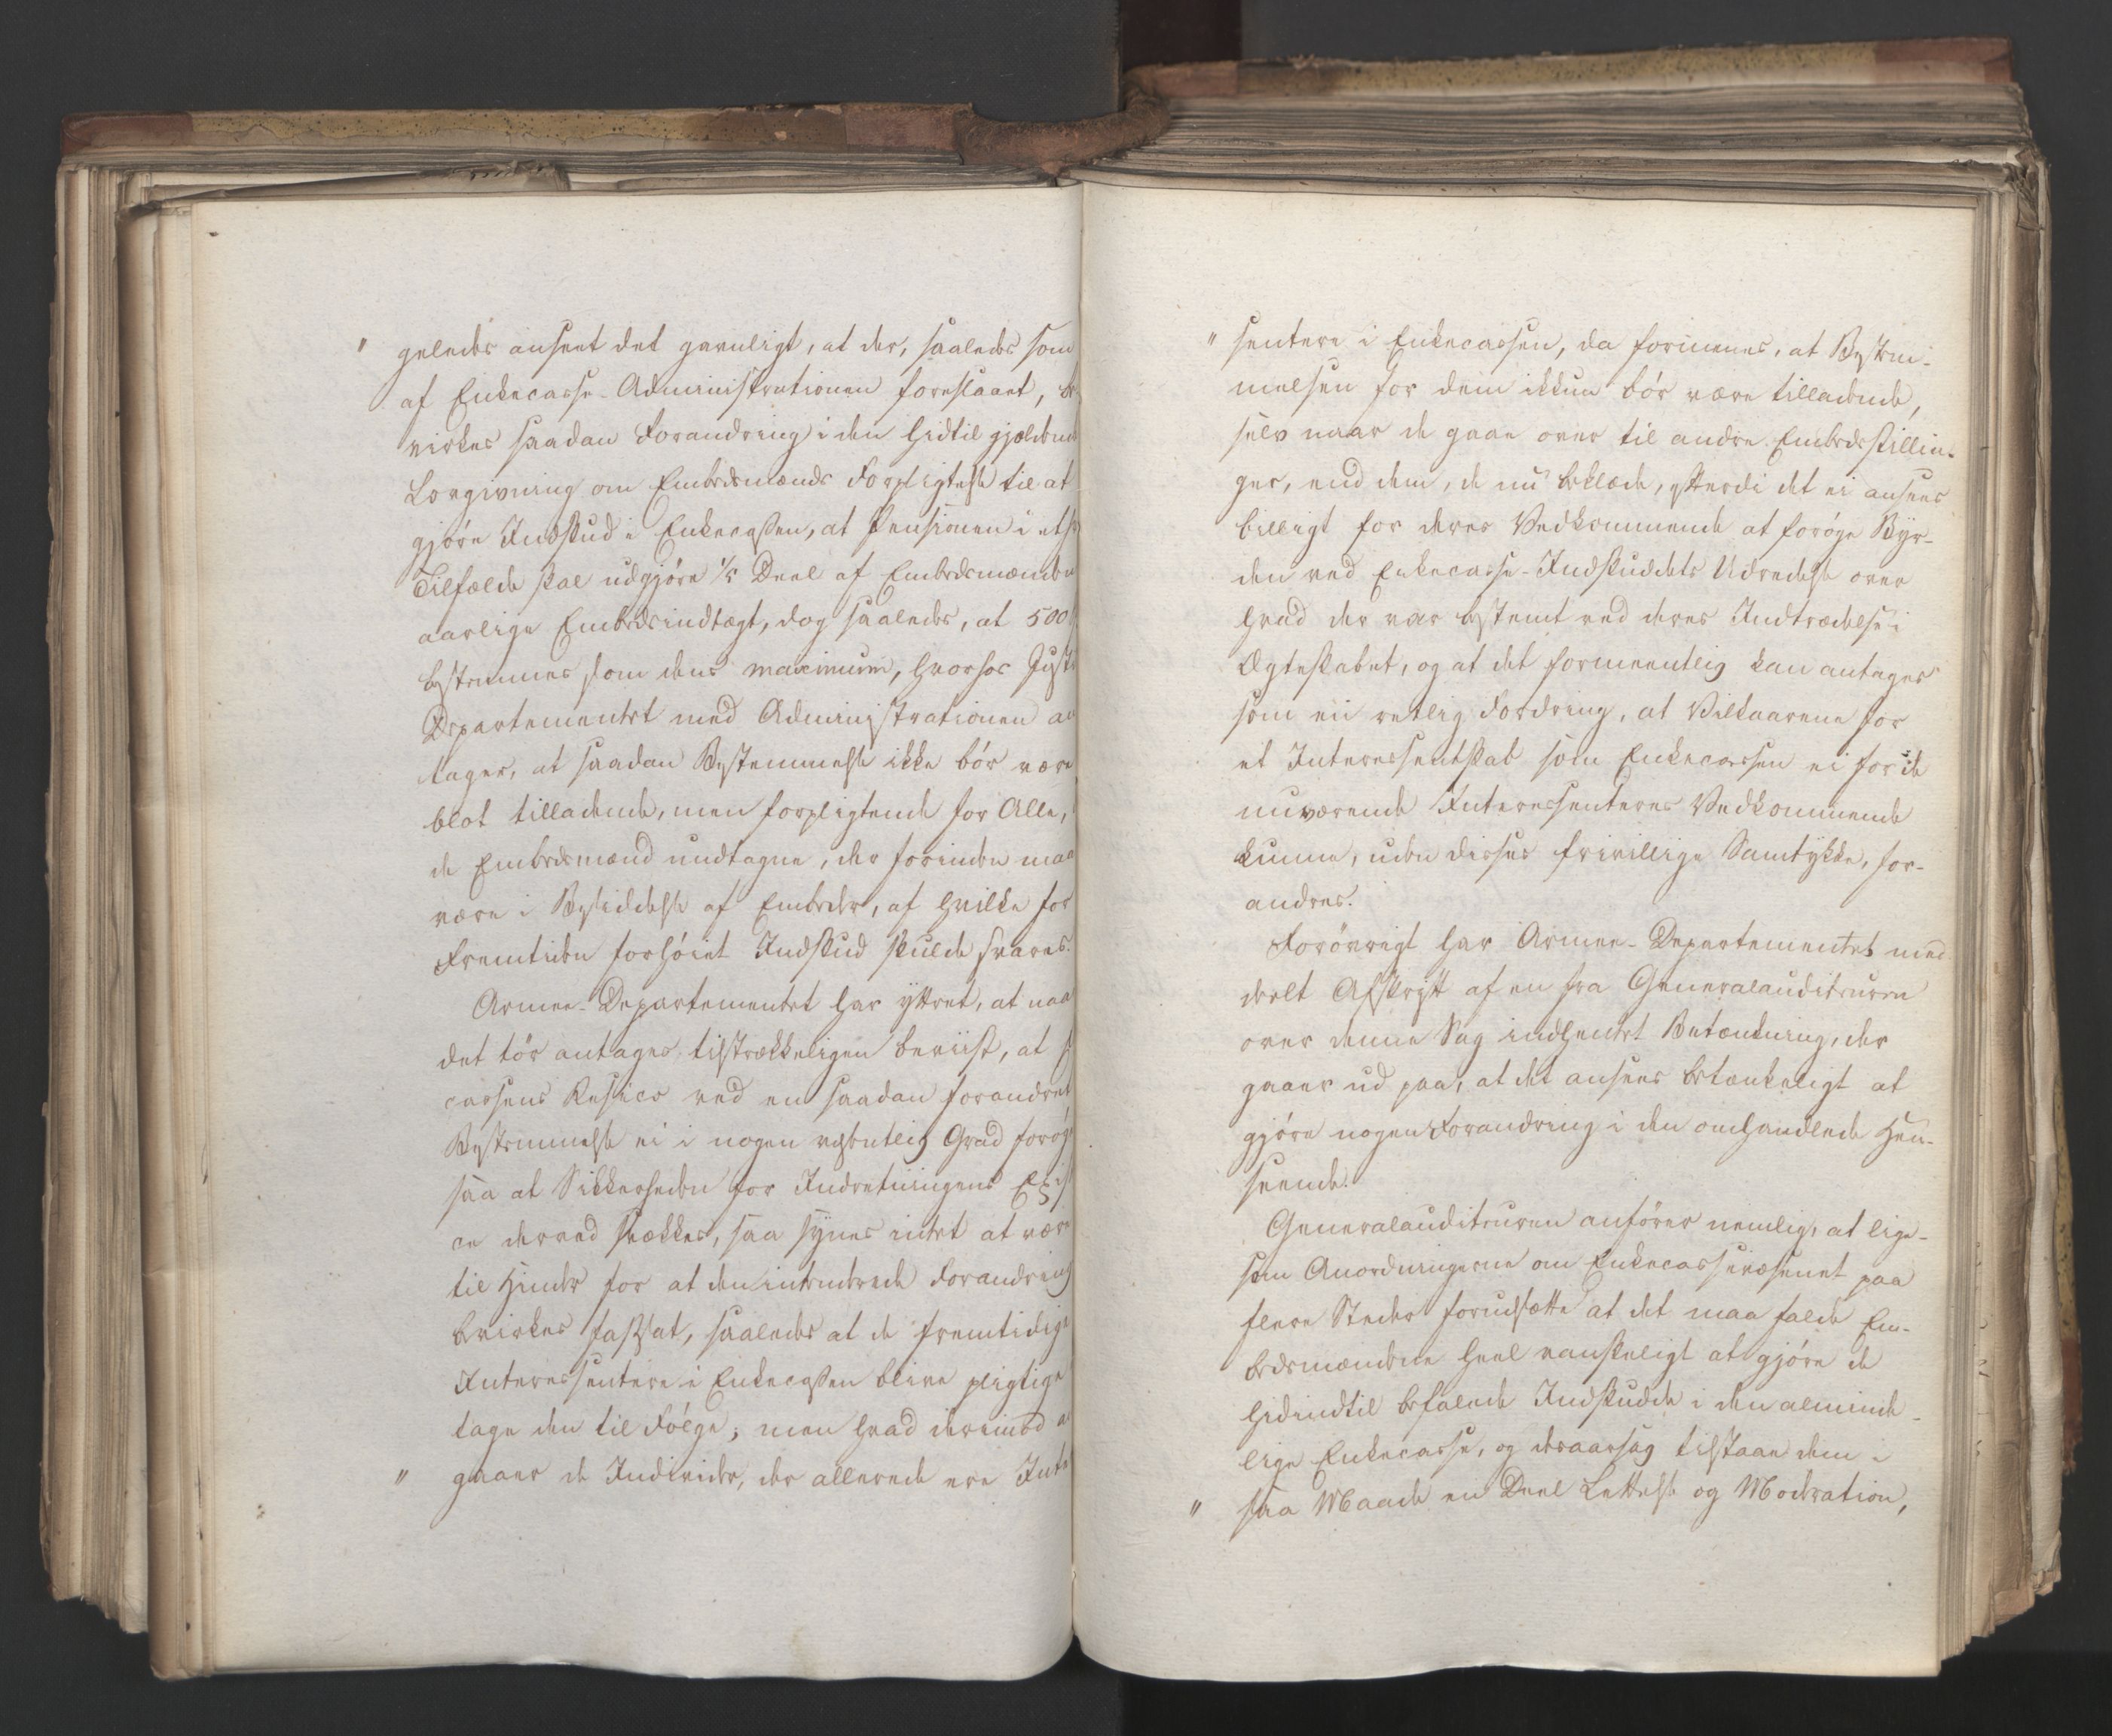 " geledes anseet det gavnligt, at der, saaledes som
af Enkecasse-Administrationen foreslaaet, be
virkes saadan Forandring i den hidtil gjældende
Lovgivning om Embedsmænds Forpligtelse til at
gjøre Indskud i Enkecassen, at Pensionen i ethv
Tilfælde skal udgjøre 1/5 Deel af Embedsmandens
aarlige Embedsindtægt, dog saaledes, at 500
bestemmes som dens maximum, hvorhos Justi
Departementet med Administrationen an
tager, at saadan Bestemmelse ikke bør være
blot tilladende, men forpligtende for Alle,
de Embedsmænd undtagne, der forinden maa
være i Besiddelse af Embeder, af hvilke for
Fremtiden forhøiet Indskud skulde svares.
Armee-Departementet har yttret, at naa
det tør antages tilstrækkeligen beviist, at
cassens Risico ved en saadan forandret
Bestemmelse ei i nogen væsentlig Grad forøge
saa at Sikkerheden for Indretningens Exis
ce derved svækkes, saa synes intet at være
til Hinder for at den intenderede Forandring
bevirkes fastsat, saaledes at de fremtidige
Interessentere i Enkecassen blive pligtige
tage den til Følge; men hvad derimod a
" gaaer de Individer, der allerede ere Inte
" sentere i Enkecassen, da formenes, at Bestem-
melsen for dem ikkun bør være tilladende,
selv naar de gaae over til andre Embedsstillin-
ger, end dem, de nu beklæde, efterdi det ei ansees
billigt for deres Vedkommende at forøge Byr-
den ved Enkecasse-Indskuddets Udredelse over
hvad der var bestemt ved deres Indtrædelse i
Ægteskabet, og at det formeentlig kan antages
som en retlig Fordring, at Vilkaarene for
et Interessentskab som Enkecassen ei for de
nuværende Interessenteres Vedkommende
kunne, uden disses frivillige Samtykke, for-
andres.
Forøvrigt har Armee-Departementet med
deelt Afskrift af en fra Generalauditeuren
over denne Sag indhentet Betænkning, der
gaaer ud paa, at det ansees betænkeligt at
gjøre nogen Forandring i den omhandlede Hen-
seende.
Generalauditeuren anfører nemlig, at lige-
som Anordningerne om Enkecassevæsenet paa
flere Steder forudsætte at det maa falde Em-
bedsmændene heel vanskeligt at gjøre de
hidindtil befalede Indskudde i den alminde-
lige Enkecasse, og desaarsag tilstaae dem i
" saa Maade en Deel Lettelse og Moderation,